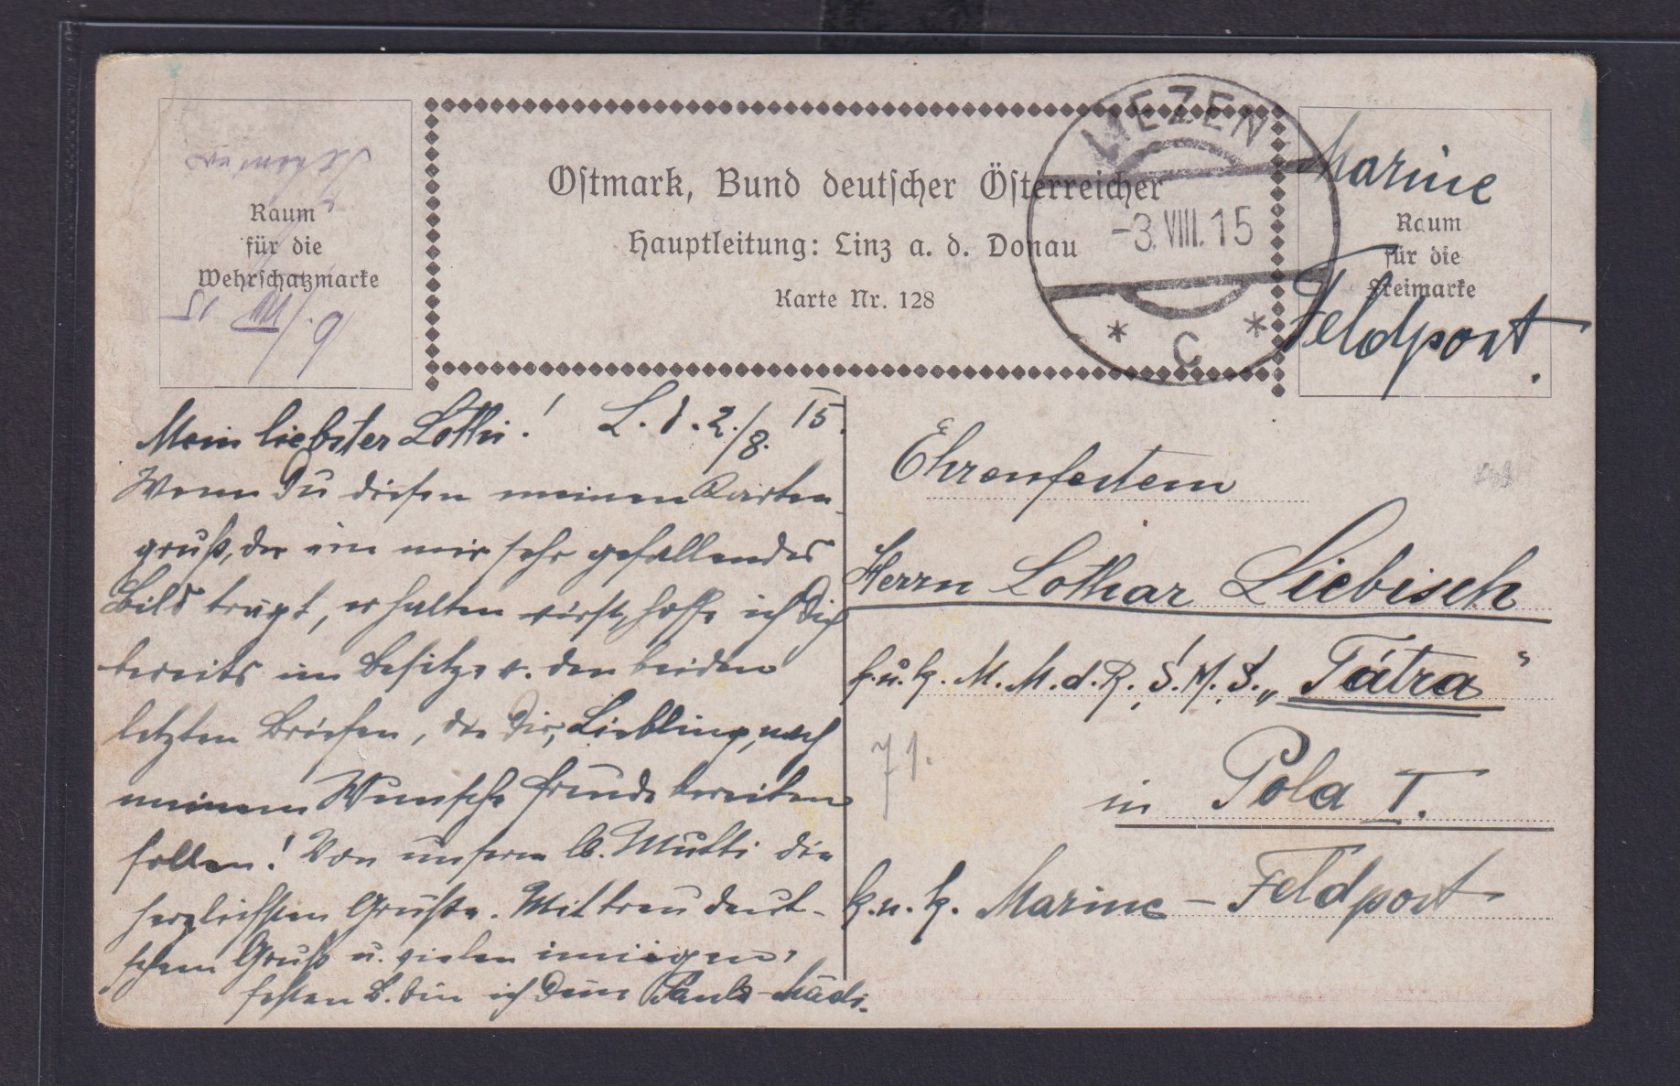 Raum
für die
Wehrschatzmarke
9./VIII 15
Ostmark, Bund deutscher Österreicher
Hauptleitung: Linz a. d. Donau
Karte Nr. 128
LIEZEN
-3.VIII.15
* C *
Marine
Raum
für die
Freimarke
Feldpost.
Mein liebster Lothi! L. d. 2./8. 15.
Wenn Du diesen meinen Karten-
gruß, der ein mir sehr gefallendes
Bild trägt, erhalten wirst, hoffe ich Dich
bereits im Besitze v. den beiden
letzten Briefen, die Dir, Liebling, nach
meinem Wunsche Freude bereiten
sollen! Von unserer lb. Mutti die
herzlichsten Grüße. Mit treudeut-
schem Gruß u. vielen innigen,
festen B. bin ich Dein
Ehrenfestem
Herrn Lothar Liebisch
k. u. k. M. M. d. R., S. M. S. „Tátra"
71.
in Pola I.
k. u. k. Marine-Feldpost